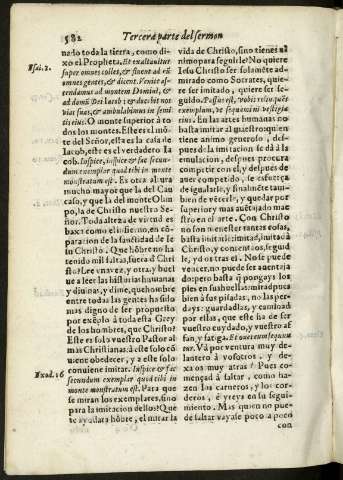 582 Tercera parte del sermon
nado toda la tierra, como di-
xo el Propheta. Et exaltauitur
Isai. 2.
super omnes colles, & fluent ad eũ
omnes gentes, & dicent. Venite as-
cendamus ad montem Domini, &
ad domũ Dei Iacob: & docebit nos
vias suas, & ambulabimus in semi-
tis eius. O monte superior a to-
dos los montes. Este es el mõ-
te del Señor, esta es la casa de
Iacob, este es el verdadero Ia-
cob. Inspice, inspice & fac secun-
dum exemplar quod tibi in monte
monstratum est. Es otra altura
mucho mayor que la del Cau-
caso, y que la del monte Olim-
po, la de Christo nuestro Se-
ñor. Toda alteza de virtud es
baxa como el infierno, en cõ-
paracion de la sanctidad de Ie-
su Christo. Que hõbre no ha
tenido mil faltas, fuera d' Chri
sto? Lee chavez, y otra, y buel
ue a leer las historias humanas
y diuinas, y dime, que hombre
entre todas las gentes ha sido
mas digno de ser propuesto
por exẽplo à toda esta Grey
de los hombres, que Christo?
Este es solo vuestro Pastor al
mas Christianas: à este solo cõ
uiene obedecer, y a este solo
conuiene imitar. Inspice & fac
Exod. 16
secundum exemplar quod tibi in
monte monstratum est. Para que
se miran los exemplares, sino
para la imitacion dellos? Que
te ayudara hõbre, el mirar la
vida de Christo, sino tienes a-
nimo para seguirle? No quiere
Iesu Christo ser solamẽte ad-
mirado como Socrates, quie-
re ser imitado, quiere ser se-
guido. Passus est, vobis relinquẽs
exemplum, vt sequamini vestigia
eius. En las artes humanas no
basta imitar al maestro: quien
tiene animo generoso, des-
pues de la imitacion se dà a la
emulacion, despues procura
competir con el, y despues de
auer competido, se esfuerça
de igualarle, y finalmẽte tam-
bien de vẽcerle, y quedar por
superior y mas auẽtajado mae
stro en el arte. Con Christo
no son menester tantas cosas,
basta imitarle: imitad, imitad à
Christo, y contentaos, seguid-
le, yd os tras el. No se puede
vencer, no puede ser auentaja
do: pero basta q̃ pongays los
pies en sus huellas: mirad pues
biẽ à sus pisadas, no las per-
days: guardadlas, y caminad
por ellas, que este ha de ser
vuestro cuydado, y vuestro af
fan, y fatiga. Et oues eum sequun
tur. Và por ventura muy de-
lantero à vosotros, y de-
xa os muy atras? Pues co-
mençad à saltar, como hazen
los carneros, y los cor-
deros, è yreys en su segui-
miento. Mas quien no pue-
de saltar vayase poco a poco
con